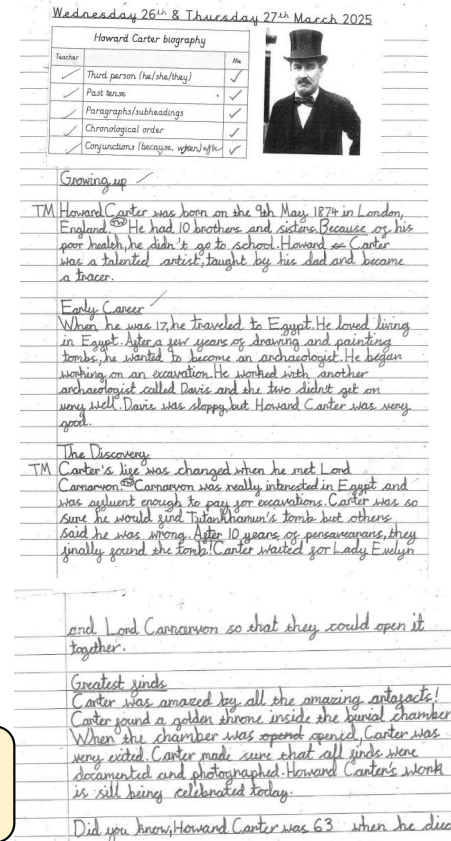 Wednesday 26th & Thursday 27th March 2025
Howard Carter biography
Teacher Me
Third person (he/she/they)
Past tense
Paragraphs/subheadings
Chronological order
Conjunctions (because, when) after
Growing up
TM Howard Carter was born on the 9th May 1874 in London,
England. TM He had 10 brothers and sisters. Because of his
poor health, he didn't go to school. Howard Carter
was a talented artist, taught by his dad and became
a tracer.
Early Career
When he was 17, he traveled to Egypt. He loved living
in Egypt. After a few years of drawing and painting
tombs, he wanted to become an archaeologist. He began
working on an excavation. He worked with another
archaeologist called Davis and the two didnt get on
very well. Davis was sloppy, but Howard Carter was very
good.
The Discovery
TM Carter's life was changed when he met Lord
Carnarvon. TM Carnarvon was really interested in Egypt and
was affluent enough to pay for excavations. Carter was so
sure he would find Tutankhamun's tomb but others
said he was wrong. After 10 years of persavearans, they
finally found the tomb! Carter waited for Lady Evelyn
and Lord Carncervon so that they could open it
together.
Greatest finds
Carter was amazed by all the amazing artafacts!
Carter found a golden throne inside the burial chamber
When the chamber was opend opened, Carter was
very exited. Carter made sure that all finds were
documented and photographed. Howard Carter's work
is sill being celebrated today.
Did you know, Howard Carter was 63 when he died